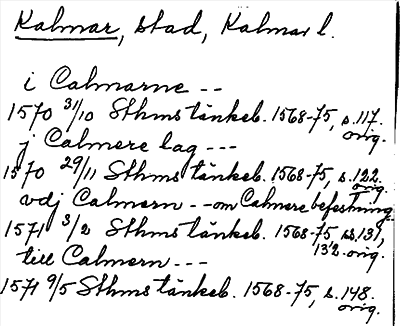 Kalmar, stad, Kalmar l.
i Calmarne --
1570 31/10 Sthms tänkeb. 1568-75, s. 117. orig.
j Calmere lag ---
1570 29/11 Sthms tänkeb. 1568-75, s. 122. orig.
vdj Calmern -- om Calmere befestning
1571 3/2 Sthms tänkeb. 1568-75, ss. 131, 132. orig.
till Calmern ---
1571 9/5 Sthms tänkeb. 1568-75, s. 148. orig.